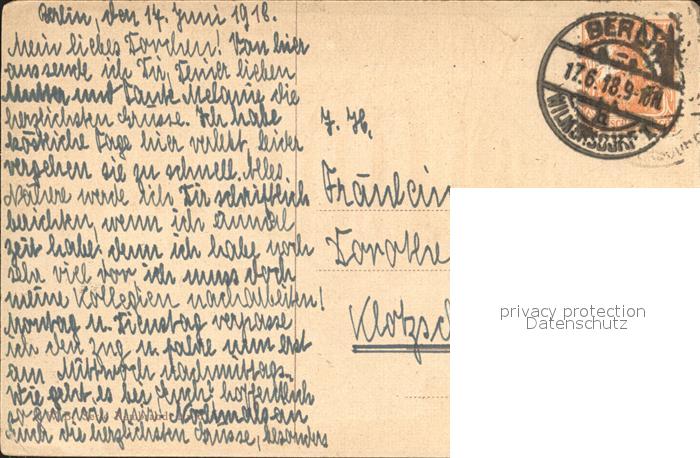 Berlin, den 17. Juni 1918.
Mein liebes Dorchen! Von hier
aus sende ich Dir, Deiner lieben
Mutter und Tante Melanie die
herzlichsten Grüsse. Ich habe
köstliche Tage hier verlebt, leider
vergehen sie zu schnell. Alles
Nähere werde ich Dir schriftlich
berichten, wenn ich einmal
Zeit habe, denn ich habe noch
sehr viel vor, ich muss doch
meine Kollegien nacharbeiten!
Montag u. Dienstag verpasse
ich den Zug u. fahre nun erst
am Mittwoch nachmittag.
Wie geht es bei Euch? hoffentlich
so gut wie Nochmals an
Euch die herzlichsten Grüsse, besonders
z. Z.
Fräulein
Dorothe
Klotzsc
BERLIN
17.6.18.9-10N
WILMERSDORF 1
privacy protection
Datenschutz